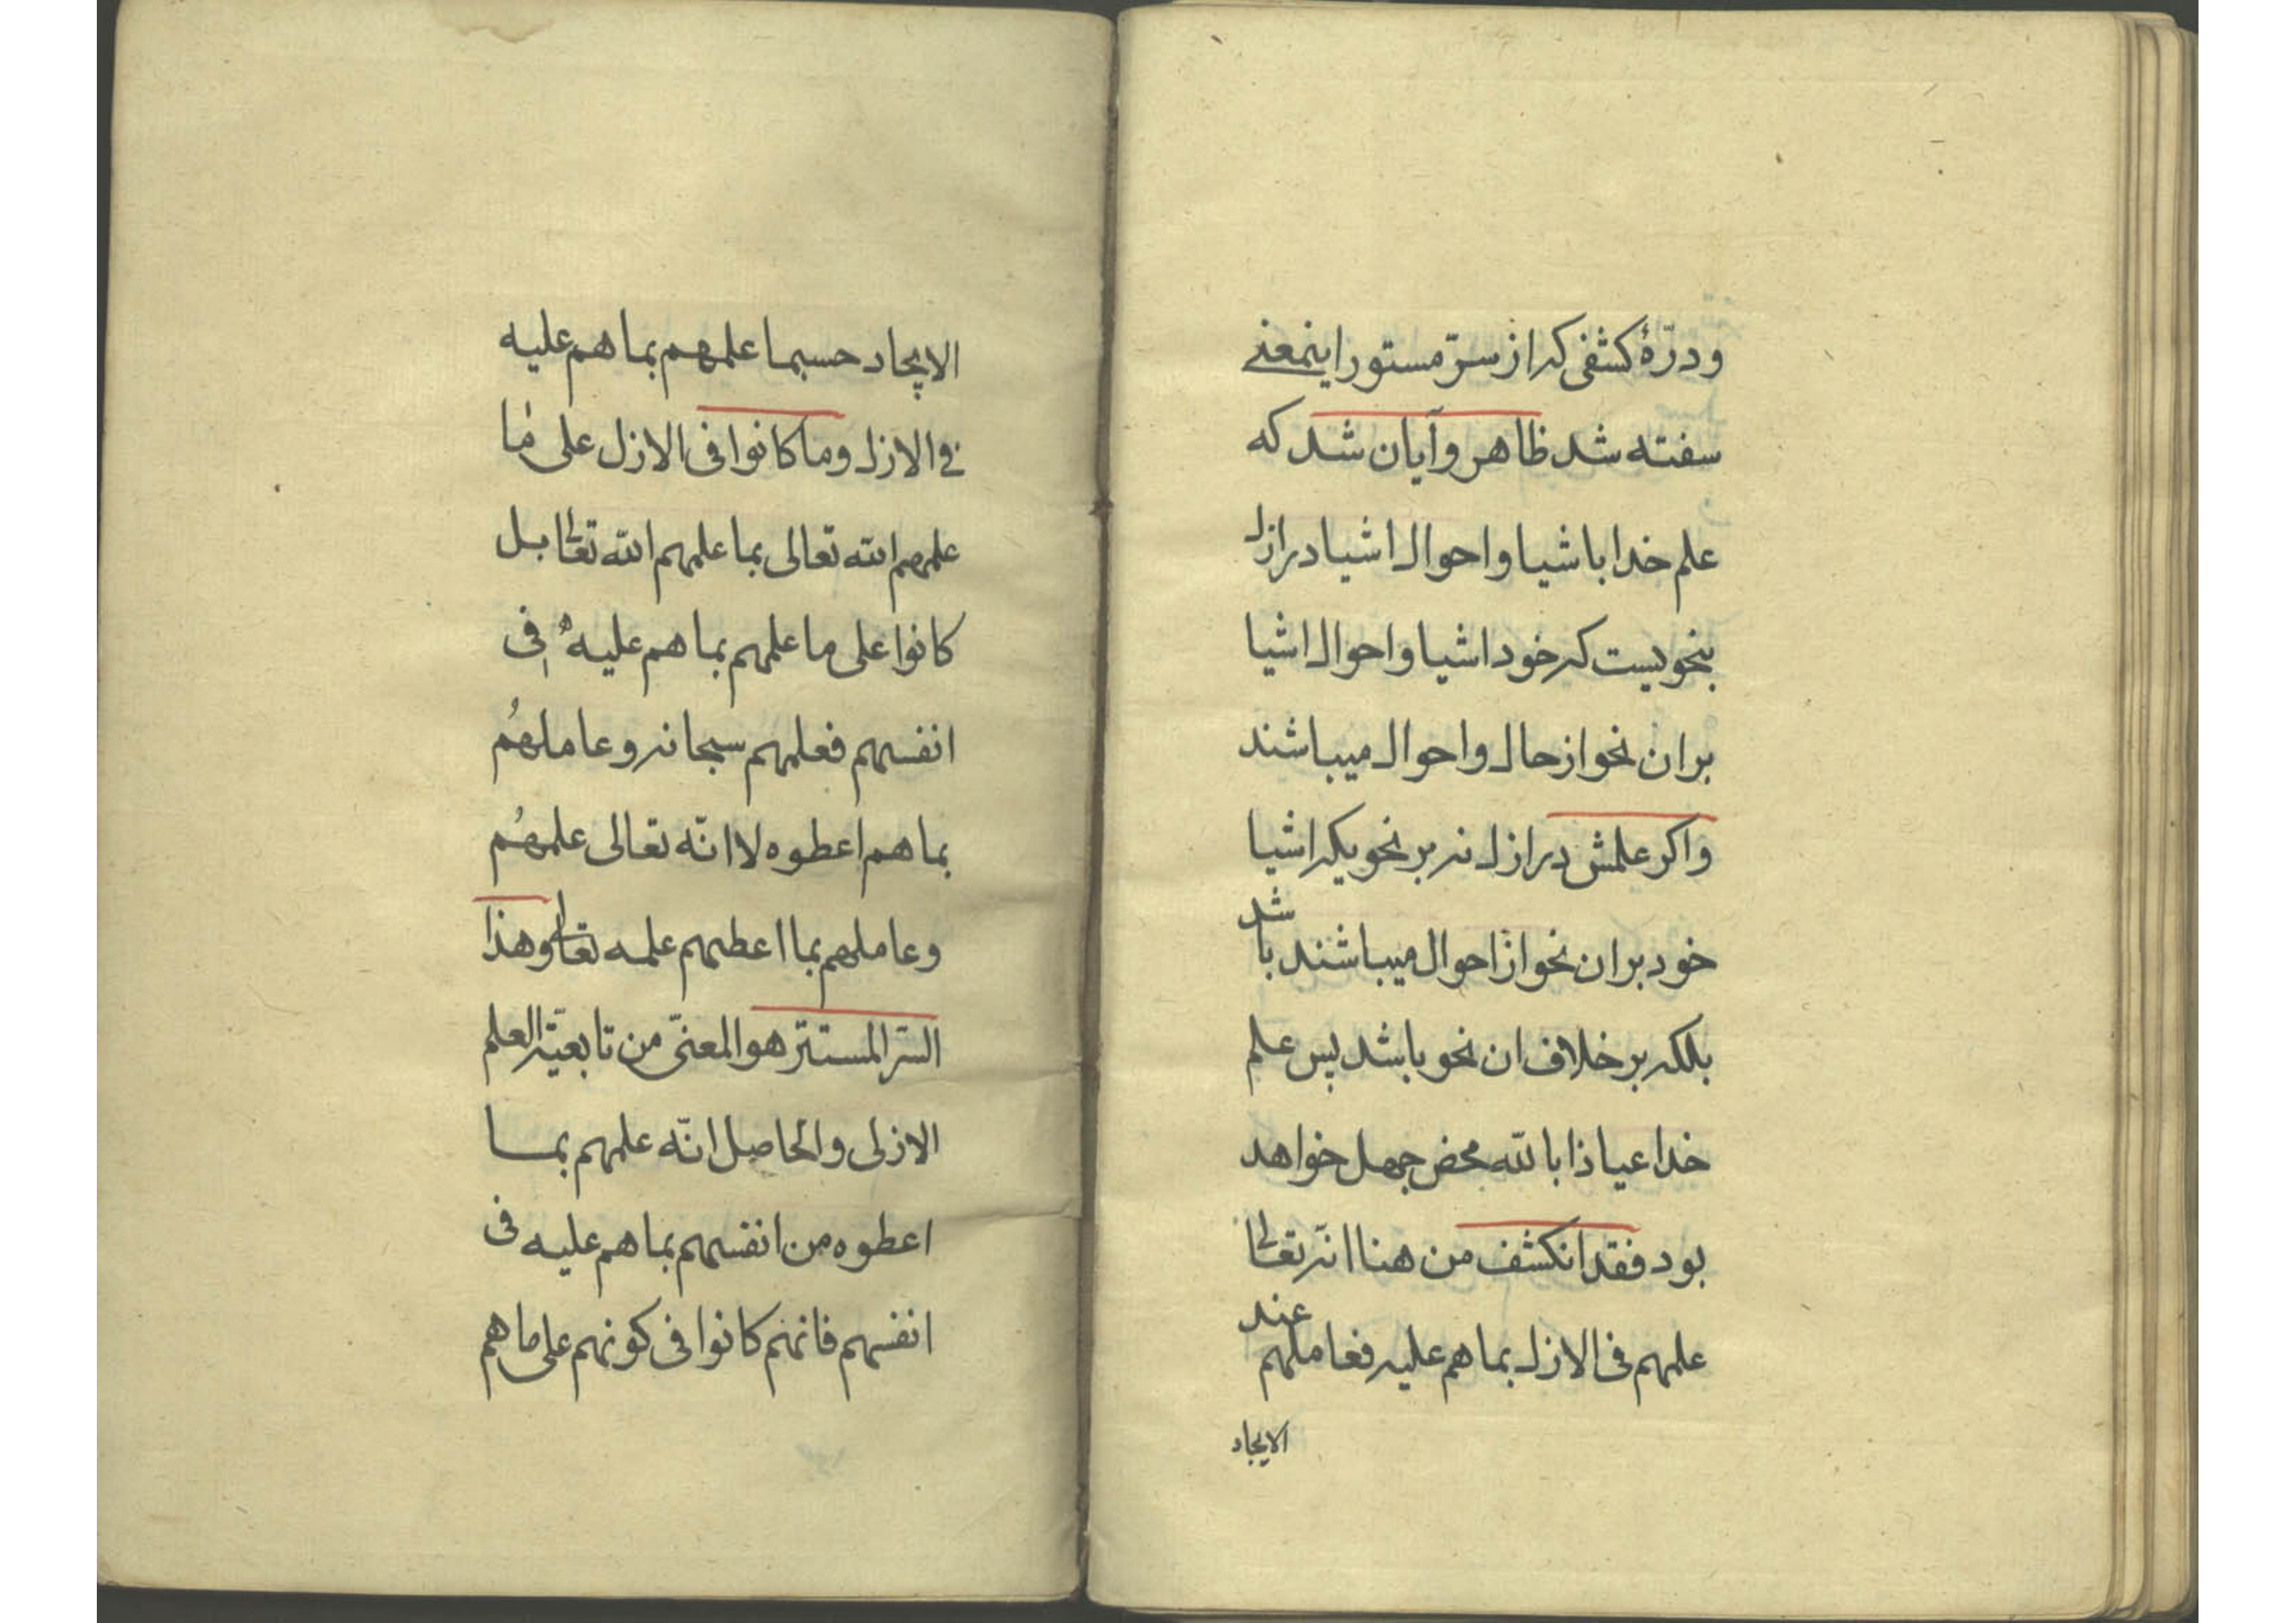 ودرّهٔ کشفی که از سرّ مستور اینمعنے
سفته شد ظاهر وآیان شد که
علم خدا باشیا واحوال اشیا در ازل
بنحویست که خود اشیا واحوال اشیا
بران نحو از حال واحوال میباشند
واکر علمش در ازل نه بر نحویکه اشیا
خود بران نحو از احوال میباشند باشد
بلکه بر خلاف ان نحو باشد پس علم
خدا عیاذا بالله محض جهل خواهد
بود فقد انکشف من هنا انّه تعالی
علمهم فی الازل بما هم علیه فعاملهم عند
الایجاد
الایجاد حسبما علمهم بما هم علیه
فی الازل وما کانوا فی الازل علی ما
علمهم الله تعالی بما علمهم الله تعالی بل
کانوا علی ما علمهم بما هم علیه فی
انفسهم فعلمهم سبحانه وعاملهُم
بما هم اعطوه لا انّه تعالی علمهُم
وعاملهم بما اعطیهم علمه تعالی وهذا
السّر المستتر هو المعنیّ من تابعیّة العلم
الازلی والحاصل انّه علمهم بما
اعطوه من انفسهم بما هم علیه فی
انفسهم فانهم کانوا فی کونهم علی ما هم